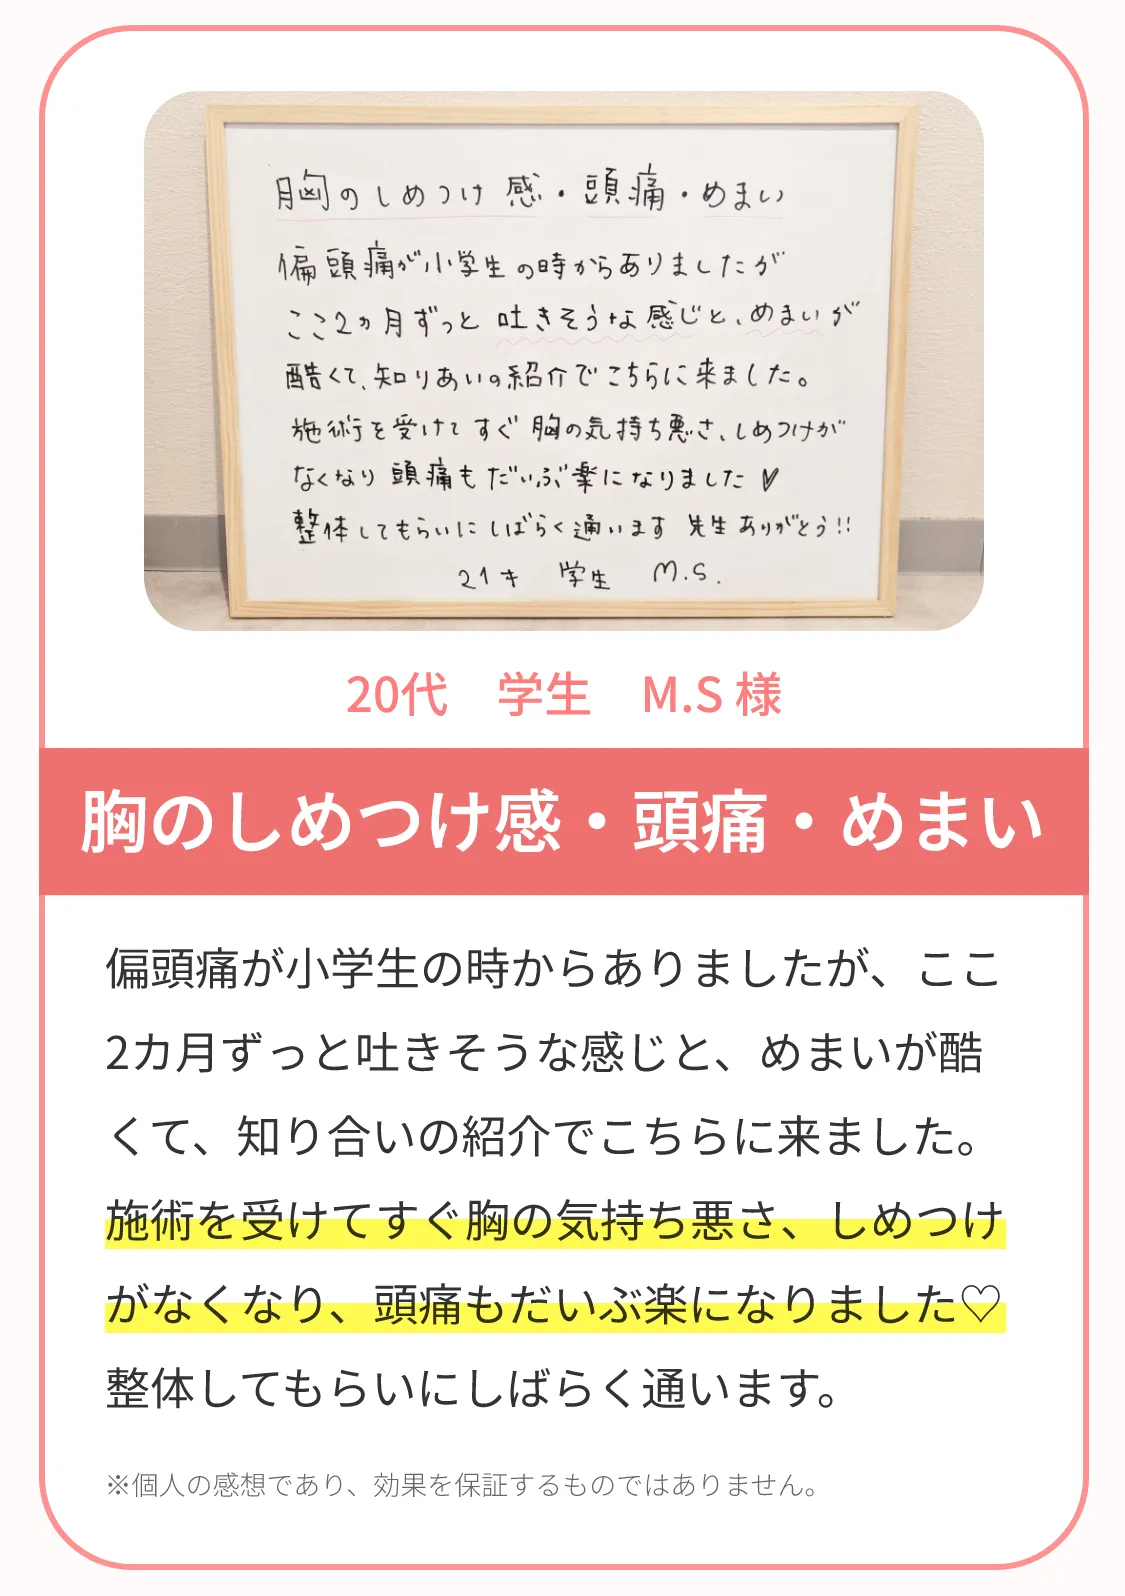 胸のしめつけ感・頭痛・めまい
偏頭痛が小学生の時からありましたが
ここ2ヵ月ずっと吐きそうな感じと、めまいが
酷くて、知りあいの紹介でこちらに来ました。
施術を受けてすぐ胸の気持ち悪さ、しめつけが
なくなり頭痛もだいぶ楽になりました♡
整体してもらいにしばらく通います 先生ありがとう!!
21才 学生 M.S.
20代 学生 M.S 様
胸のしめつけ感・頭痛・めまい
偏頭痛が小学生の時からありましたが、ここ
2カ月ずっと吐きそうな感じと、めまいが酷
くて、知り合いの紹介でこちらに来ました。
施術を受けてすぐ胸の気持ち悪さ、しめつけ
がなくなり、頭痛もだいぶ楽になりました♡
整体してもらいにしばらく通います。
※個人の感想であり、効果を保証するものではありません。